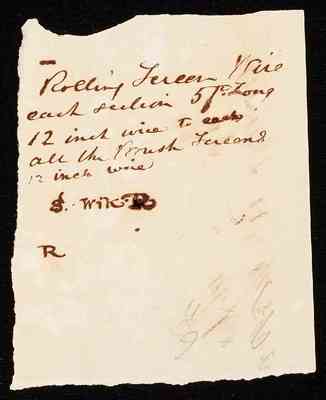 Rolling Screen Wire
each section 5 ft Long
12 inch wire to each
all the Brush Screens
12 inch wire
S. Wik R
R